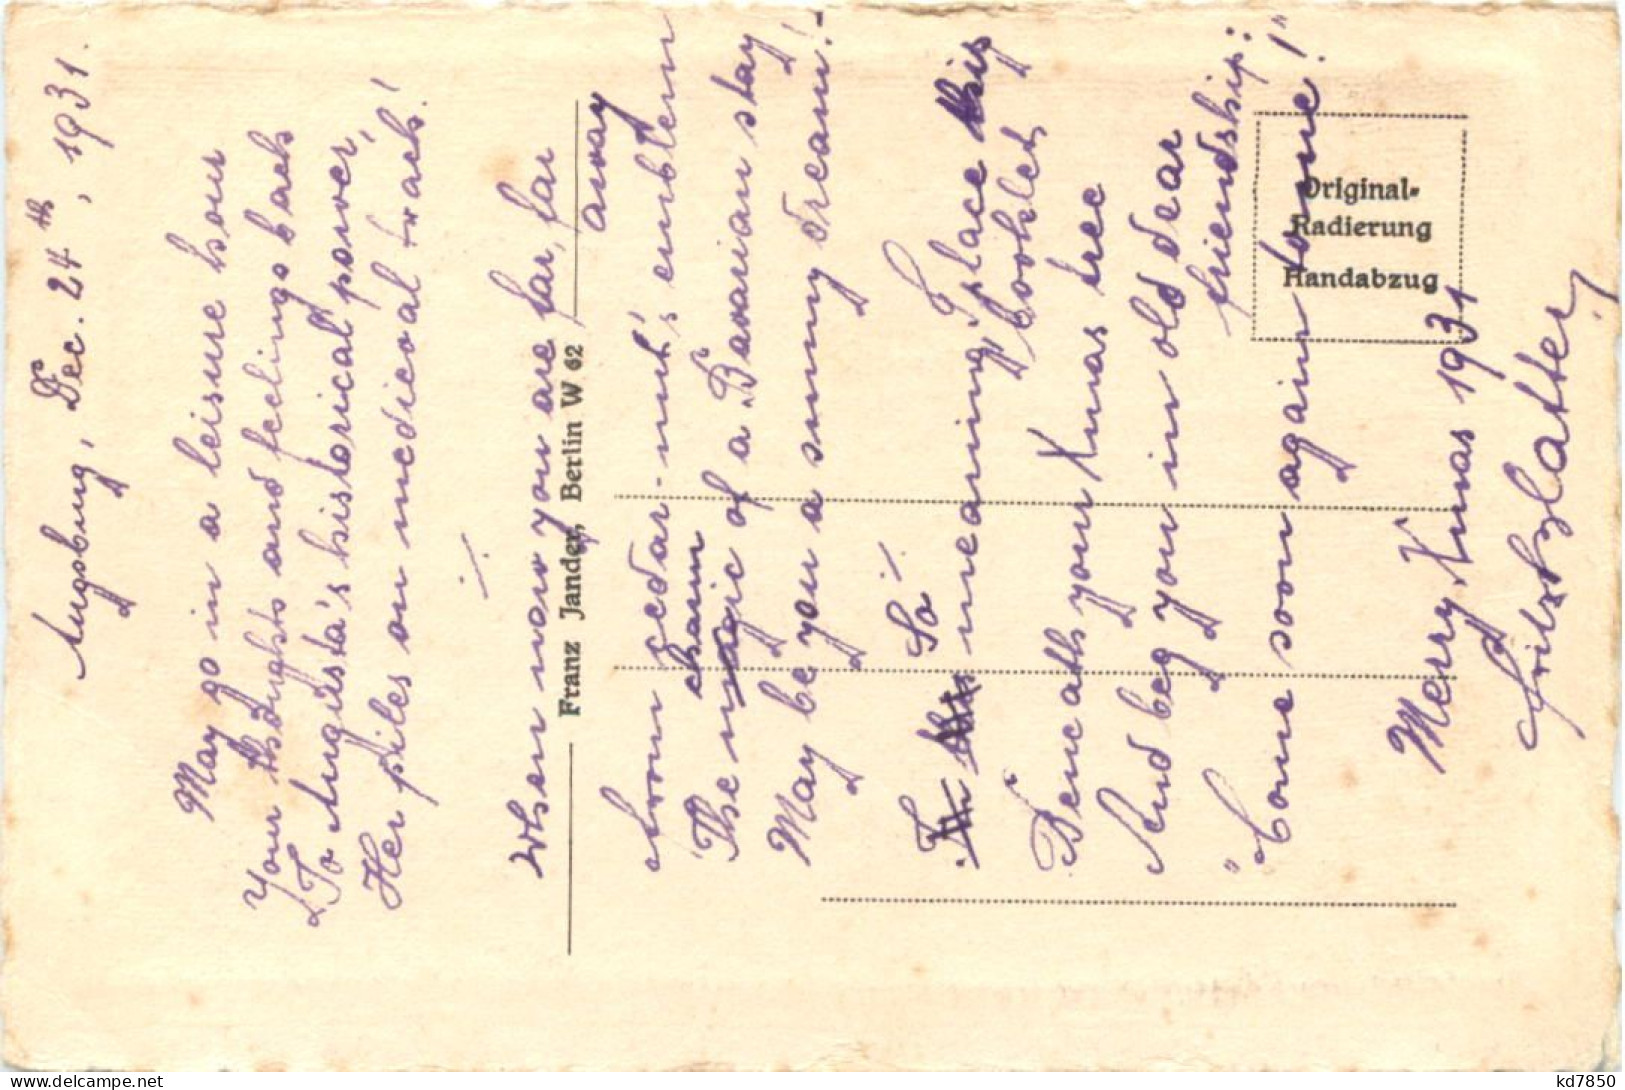 Augsburg, Dec. 24th, 1931.
May go in a leisure hour
Your thoughts and feelings back
To Augusta's historical power,
Her piles on medieval track!
When now you are far, far, far
away
From zedar-nut's emblem
charm
The magic of a Bavarian stay
May be you a sunny dream!-
So
meaning, I place this
booklet
Beneath your Xmas tree
And beg you in old dear
friendship:
"Come soon again to me!"
Merry Xmas 1931
Franz Jander, Berlin W 62
Original-
Radierung
Handabzug
kd7850